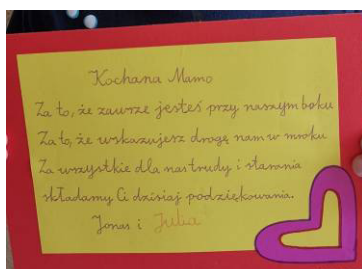 Kochana Mamo
Za to, że zawrze jesteś przy naszym boku
Za to, że wskazujesz drogę nam w mroku
Za wszystkie dla nas trudy i starania
składamy Ci dzisiaj podziękowania.
Jonas i Julia